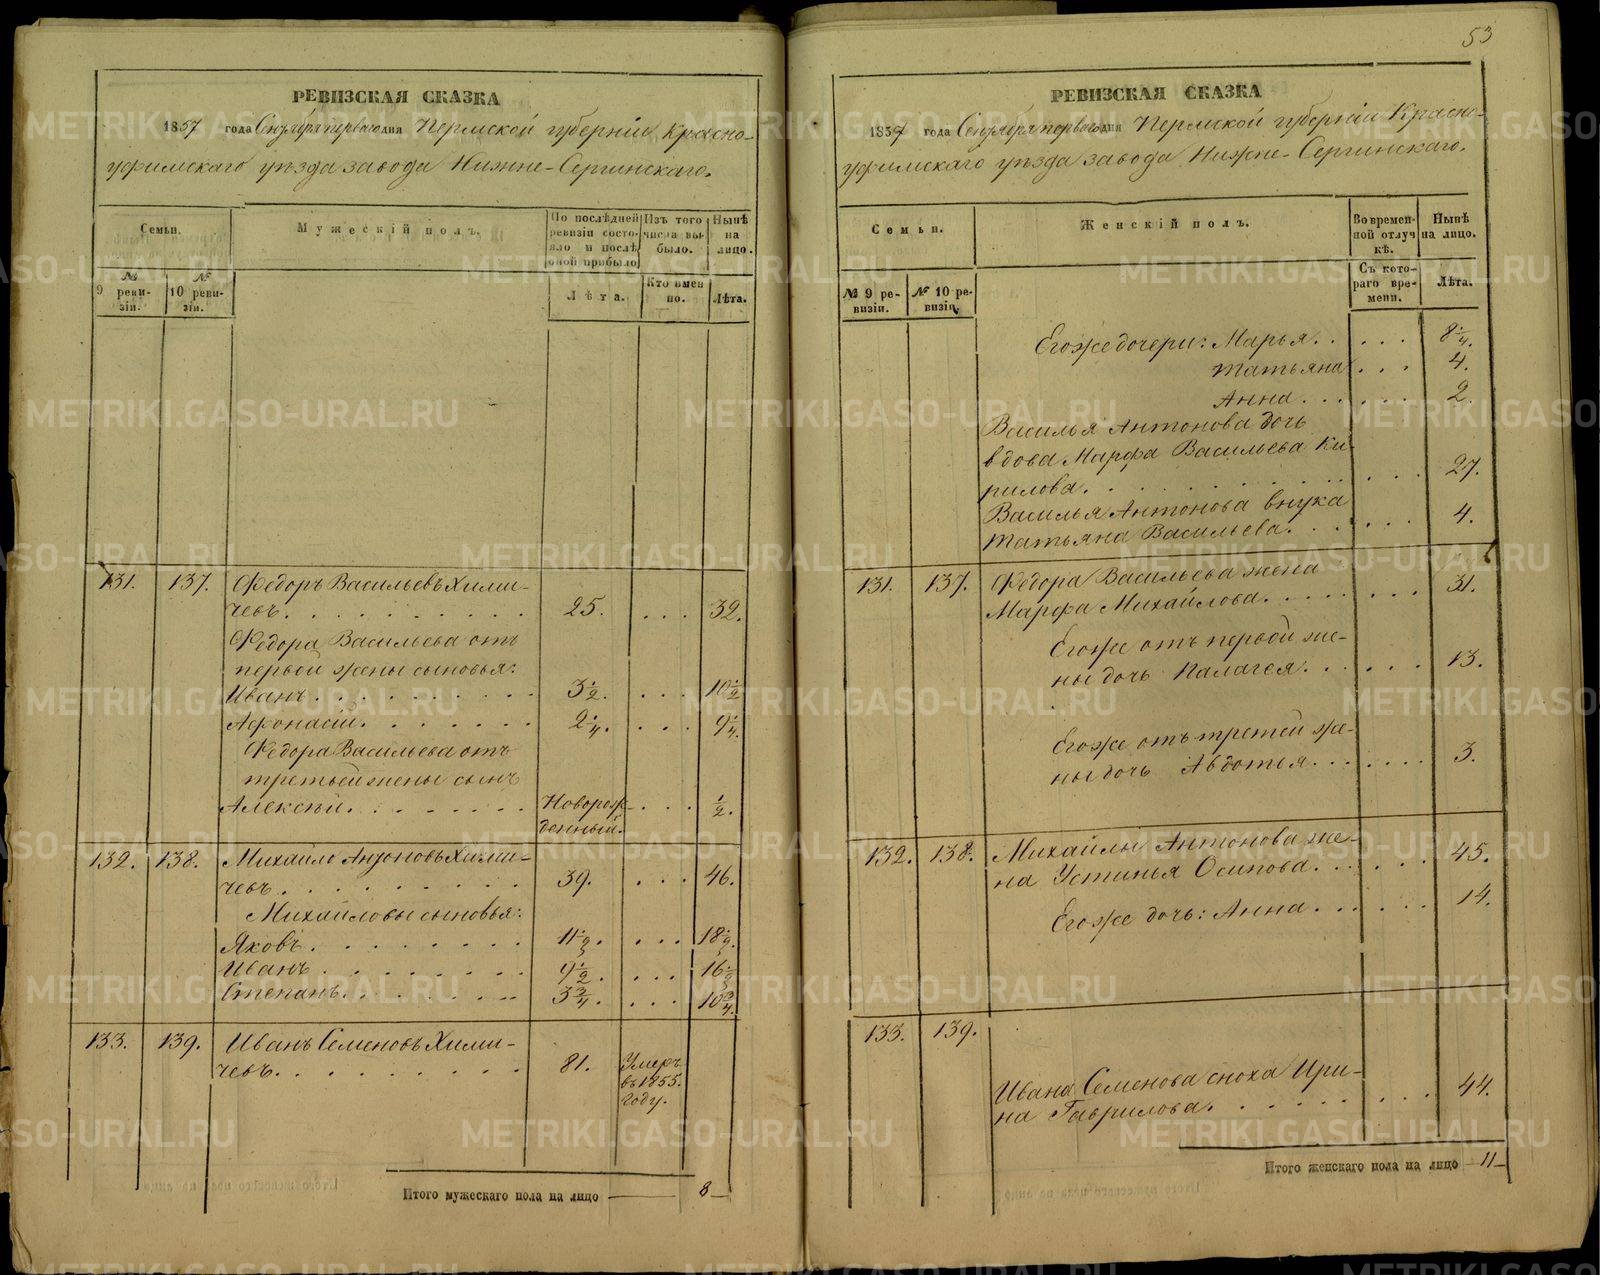 53
РЕВИЗСКАЯ СКАЗКА
1857 года Сентября первого дня Пермской губерніи Красно-
уфимскаго уѣзда завода Нижне-Сергинскаго.
Семьи.
№ 9 реви-зіи.
№ 10 реви-зіи.
Мужескій полъ.
По послѣдней ревизіи состо-яло и послѣ оной прибыло
Лѣта.
Изъ того числа вы-было.
Кто имен но.
Нынѣ на лицо.
Лѣта.
131. 137. Федоръ Васильевъ Хими-
чевъ. 25. 32.
Федора Васильева отъ
первой жены сыновья:
Иванъ. 3½. 10½
Афонасій. 2¼. 9¼.
Федора Васильева отъ
третьей жены сынъ
Алексѣй. Новорож- ½.
денный.
132. 138. Михайло Антоновъ Хими-
чевъ. 39. 46.
Михайловы сыновья:
Яковъ. 11½. 18½.
Иванъ. 9½. 16½
Степанъ. 3¾. 10¾.
133. 139. Иванъ Семеновъ Хими-
чевъ. 81. Умеръ
въ 1855.
году.
Итого мужескаго пола на лицо 8
РЕВИЗСКАЯ СКАЗКА
1857 года Сентября первого дня Пермской губерніи Красно-
уфимскаго уѣзда завода Нижне-Сергинскаго.
Семьи.
№ 9 ре-визіи.
№ 10 ре-визіи.
Женскій полъ.
Во времен-ной отлуч кѣ.
Съ кото-раго вре-мени.
Нынѣ на лицо.
Лѣта.
Его же дочери: Марья. 8¼.
Татьяна 4.
Анна. 2.
Василья Антонова дочь
вдова Марфа Васильева Ки-
рилова. 27.
Василья Антонова внука
Татьяна Васильева. 4.
131. 137. Федора Васильева жена
Марфа Михайлова. 31.
Его же отъ первой же-
ны дочь Палагея. 13.
Его же отъ третей же-
ны дочь Авдотья. 3.
132. 138. Михайлы Антонова же-
на Устинья Осипова. 45.
Его же дочь: Анна. 14.
133. 139.
Ивана Семенова сноха Ири-
на Гаврилова. 44.
Итого женскаго пола на лицо 11
METRIKI.GASO-URAL.RU